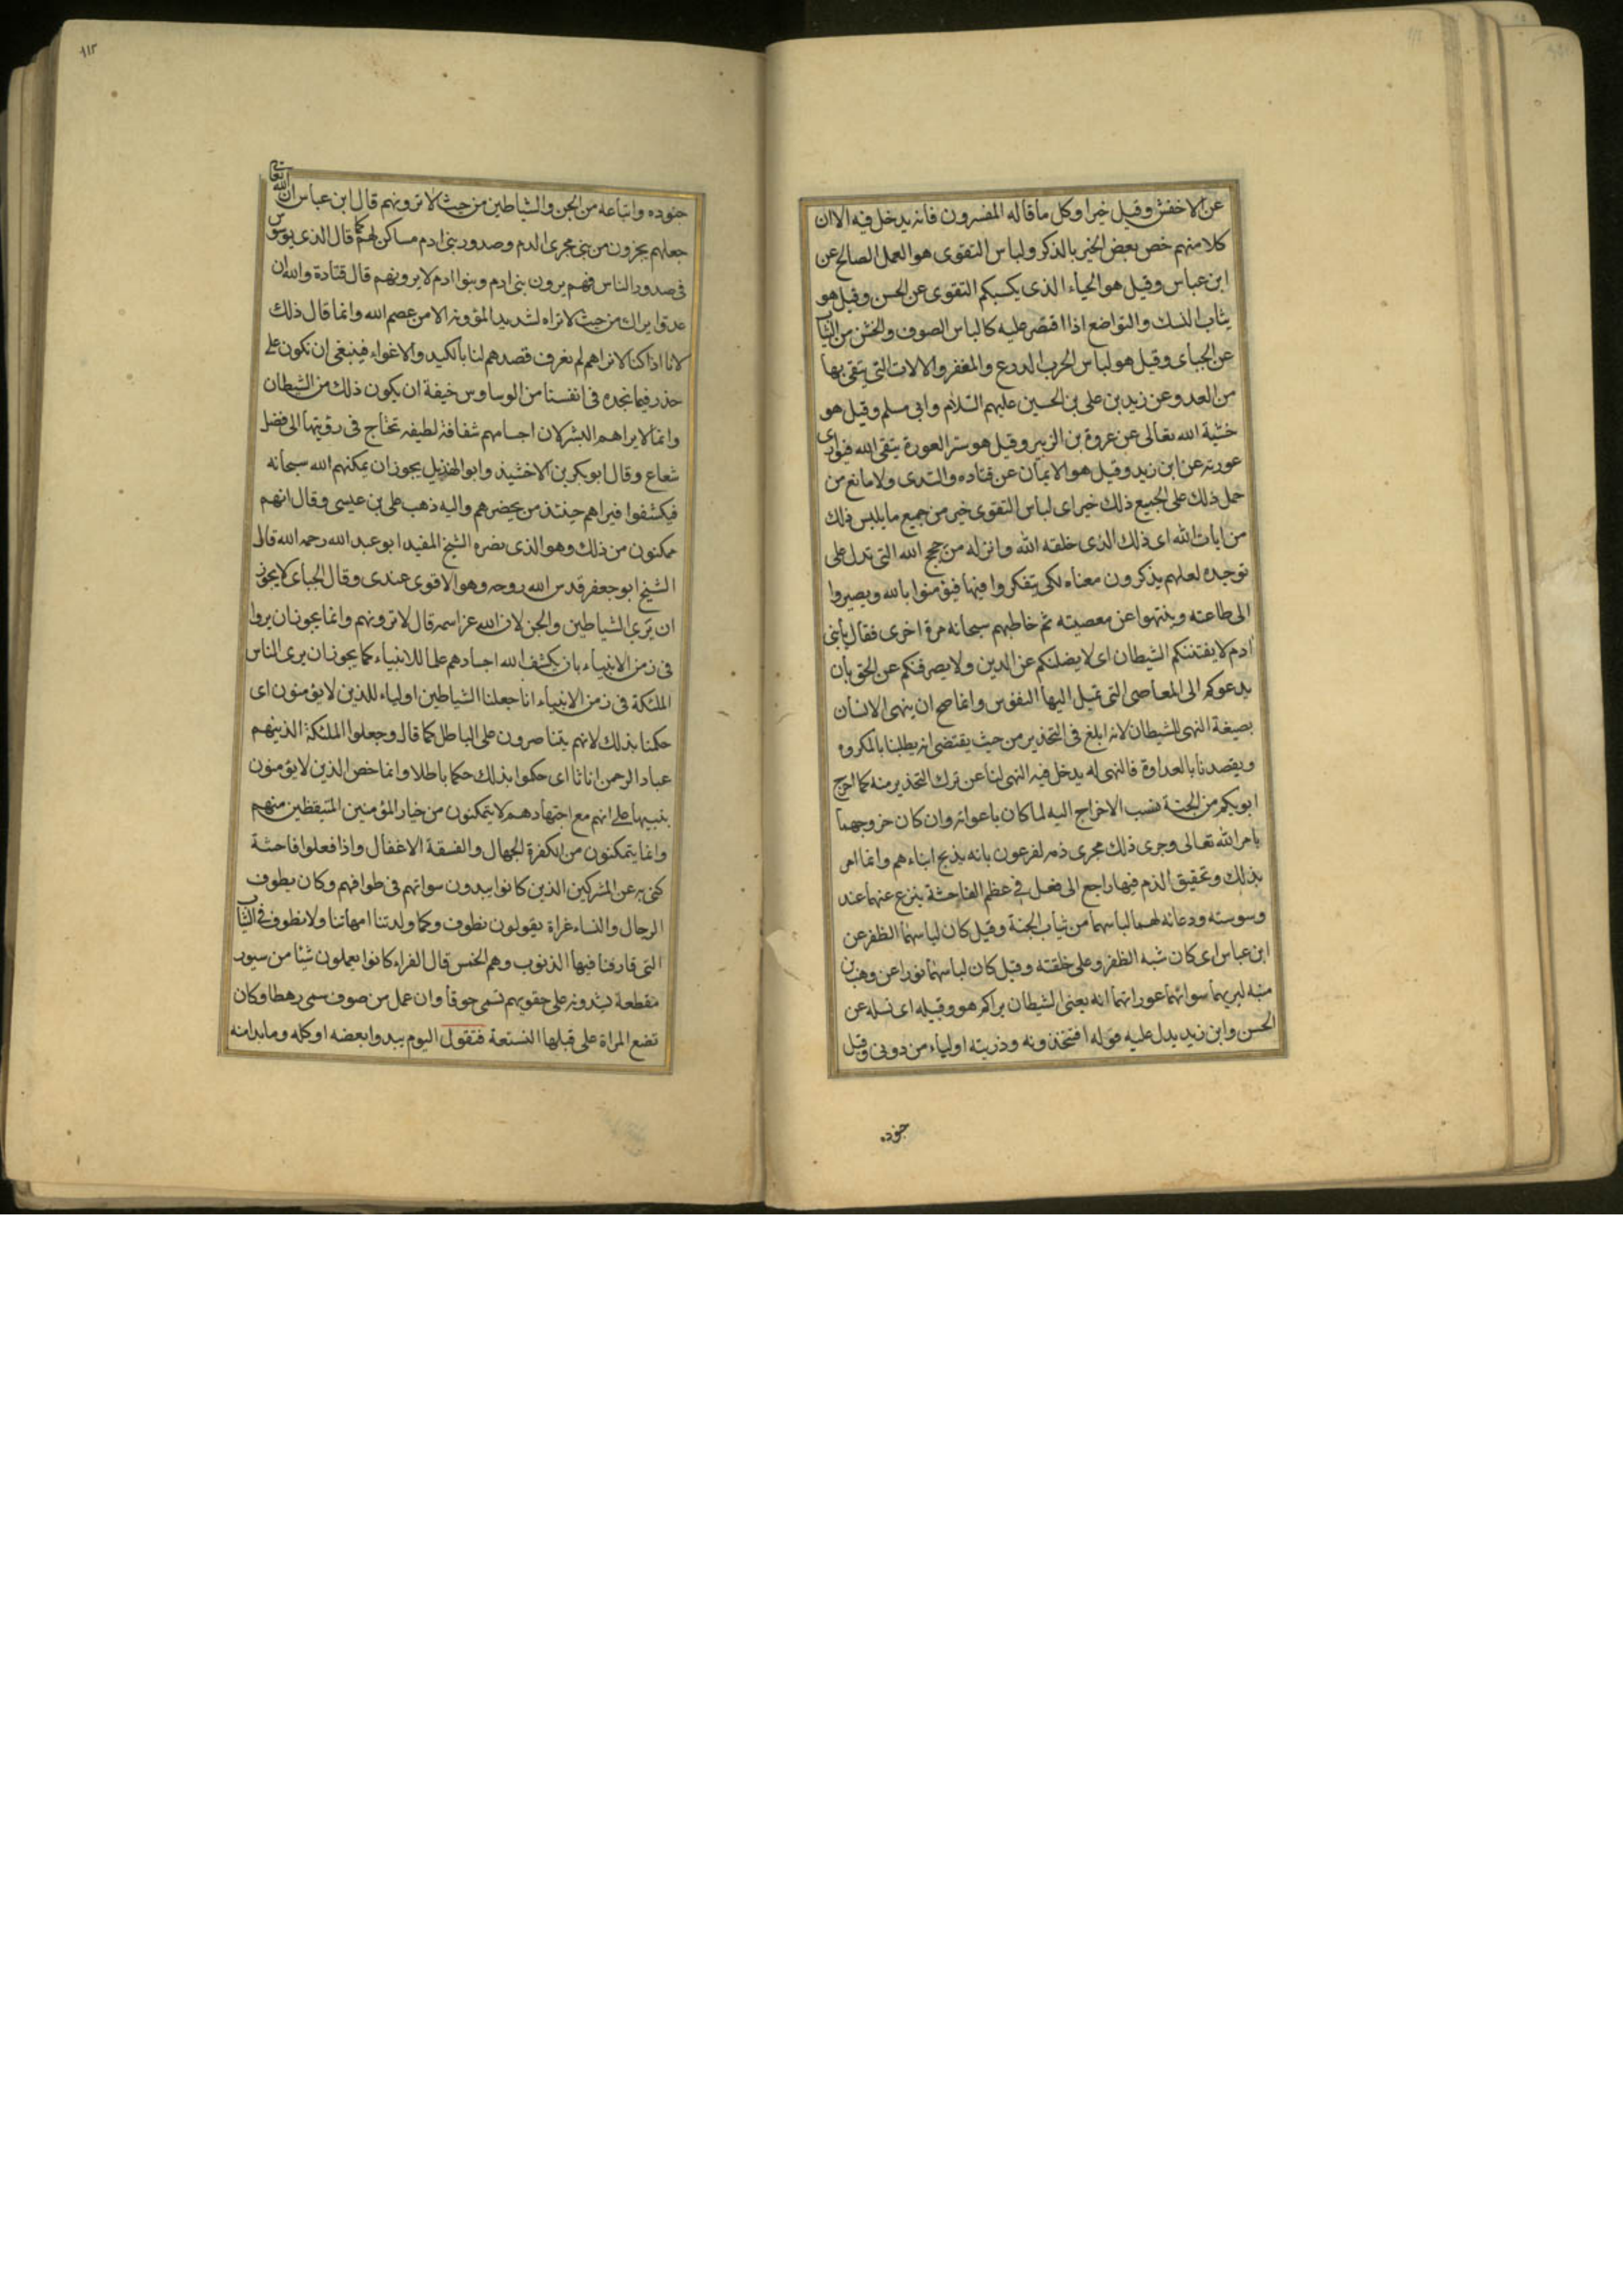 عن الاخفش وقيل خيرا وكل ما قاله المفسرون فانه يدخل فيه الا ان
كلا منهم خص بعض الخير بالذكر ولباس التقوى هو العمل الصالح عن
ابن عباس وقيل هو الحياء الذى يكسبكم التقوى عن الحسن وقيل هو
ثياب النسك والتواضع اذا اقتصر عليه كالباس الصوف والخشن من الثياب
عن الجبائى وقيل هو لباس الحرب الدروع والمغفر والالات التى يتقى بها
من العدو عن زيد بن على بن الحسين عليهم السلام وابى مسلم وقيل هو
خشية الله تعالى عن عروة بن الزبير وقيل هو ستر العورة يتقى الله فيوارى
عورته عن ابن زيد وقيل هو الايمان عن قتاده والسدى ولا مانع من
حمل ذلك على الجميع ذلك خير اى لباس التقوى خير من جميع ما يلبس ذلك
من ايات الله اى ذلك الذى خلقه الله وانزله من حجج الله التى تدل على
توحيده لعلهم يذكرون معناه لكى يتفكروا فيها فيؤمنوا بالله ويصيروا
الى طاعته وينتهوا عن معصيته ثم خاطبهم سبحانه مرة اخرى فقال يا بنى
ادم لا يفتننكم الشيطان اى لا يضلنكم عن الدين ولا يصرفنكم عن الحق بان
يدعوكم الى المعاصى التى تميل اليها النفوس وانما صح ان ينهى الانسان
بصيغة النهى للشيطان لانه ابلغ فى التحذير من حيث يقتضى انه يطلبنا بالمكروه
ويقصدنا بالعداوة فالنهى له يدخل فيه النهى لنا عن ترك التحذير منه كما اخرج
ابويكم من الجنة نسب الاخراج اليه لما كان باغوائه وان كان خروجهما
بامر الله تعالى وجرى ذلك مجرى ذمه لفرعون بانه يذبح ابناءهم وانما امر
بذلك وتحقيق الذم فيها راجع الى فعل فى عظم الفاحشة ينزع عنهما عند
وسوسته ودعائه لهما لباسهما من ثياب الجنة وقيل كان لباسهما الظفر عن
ابن عباس اى كان شبه الظفر وعلى خلقته وقيل كان لباسهما نورا عن وهب بن
منبه ليريهما سوأتهما عوراتهما انه يعنى الشيطان يراكم هو وقبيله اى نسله عن
الحسن وابن زيد يدل عليه قوله افتتخذونه وذريته اولياء من دونى وقيل
جنوده
٩١٢
جنوده واتباعه من الجن والشياطين من حيث لا ترونهم قال ابن عباس ان الله تعالى
جعلهم يجرون من بنى مجرى الدم وصدور بنى ادم مساكن لهم كما قال الذى يوسوس
فى صدور الناس فهم يرون بنى ادم وبنوا ادم لا يرونهم قال قتادة والله ان
عدوا يراك من حيث لا تراه لشديد المؤونه الا من عصم الله وانما قال ذلك
لانا اذا كنا لا نراهم لم نعرف قصدهم لنا بالكيد والاغواء فينبغى ان نكون على
حذر فيما نجده فى انفسنا من الوساوس خيفة ان يكون ذلك من الشيطان
وانما لا يراهم البشر لان اجسامهم شفافة لطيفه تحتاج فى رؤيتها الى فضل
شعاع وقال ابو بكر بن الاخشيذ وابو الهذيل يجوز ان يمكنهم الله سبحانه
فيكشفوا فيراهم حينئذ من يحضرهم واليه ذهب على بن عيسى وقال انهم
ممكنون من ذلك وهو الذى نصره الشيخ المفيد ابو عبد الله رحمه الله قال
الشيخ ابو جعفر قدس الله روحه وهو الاقوى عندى وقال الجبائى لا يجوز
ان يرى الشياطين والجن لان الله عز اسمه قال لا ترونهم وانما يجوز ان يروا
فى زمن الانبياء بان يكشف الله اجسادهم علما للانبياء كما يجوز ان يرى الناس
الملئكة فى زمن الانبياء انا جعلنا الشياطين اولياء للذين لا يؤمنون اى
حكمنا بذلك لانهم يتناصرون على الباطل كما قال وجعلوا الملئكة الذينهم
عباد الرحمن اناثا اى حكموا بذلك حكما باطلا وانما خص الذين لا يؤمنون
تنبيها على انهم مع اجتهادهم لا يتمكنون من خيار المؤمنين المتيقظين منهم
وانما يتمكنون من الكفرة الجهال والفسقة الاغفال واذا فعلوا فاحشة
كنى به عن المشركين الذين كانوا يبدون سواتهم فى طوافهم وكان يطوف
الرجال والنساء عراة يقولون نطوف وكما ولدتنا امهاتنا ولا نطوف فى الثياب
التى قارفنا فيها الذنوب وهم الحمس قال الفراء كانوا يعملون شيئا من سيور
مقطعة يشدونه على حقويهم تسمى حوفا وان عمل من صوف سمى رهطا وكان
تضع المراة على قبلها النسعة فتقول اليوم يبدوا بعضه او كله وما بدا منه